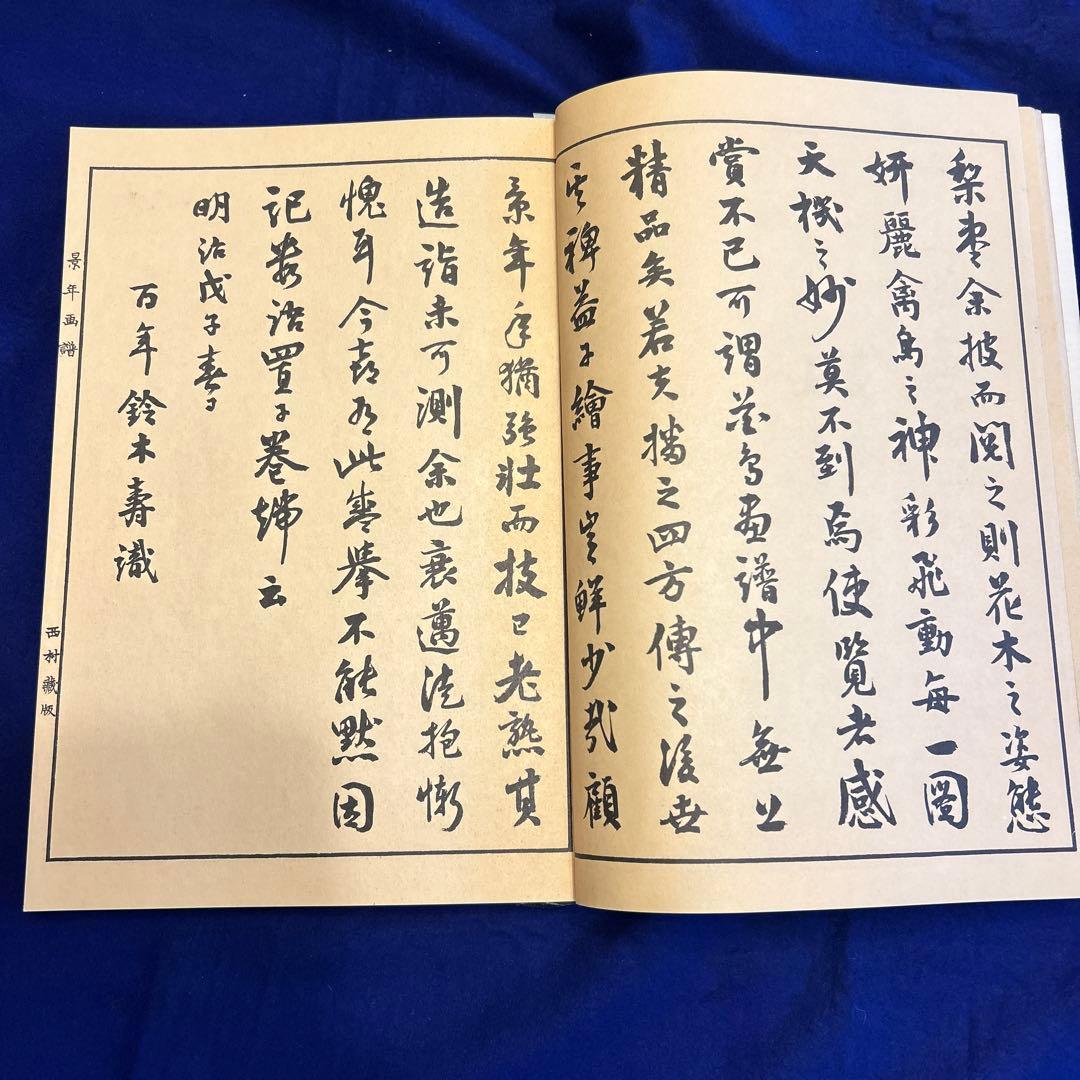 梨棗余披而閲之則花木之姿態
妍麗禽鳥之神彩飛動每一圖
天機之妙莫不到焉使覽者感
賞不已可謂花鳥畫譜中無上
精品矣若夫播之四方傳之後世
其裨益于繪事豈鮮少哉顧
景年年猶強壯而技已老熟其
造詣未可測余也衰邁徒抱慚
愧耳今喜有此盛擧不能默因
記數語置于卷端云
明治戊子春
百年鈴木壽識
景年画譜
西村藏版